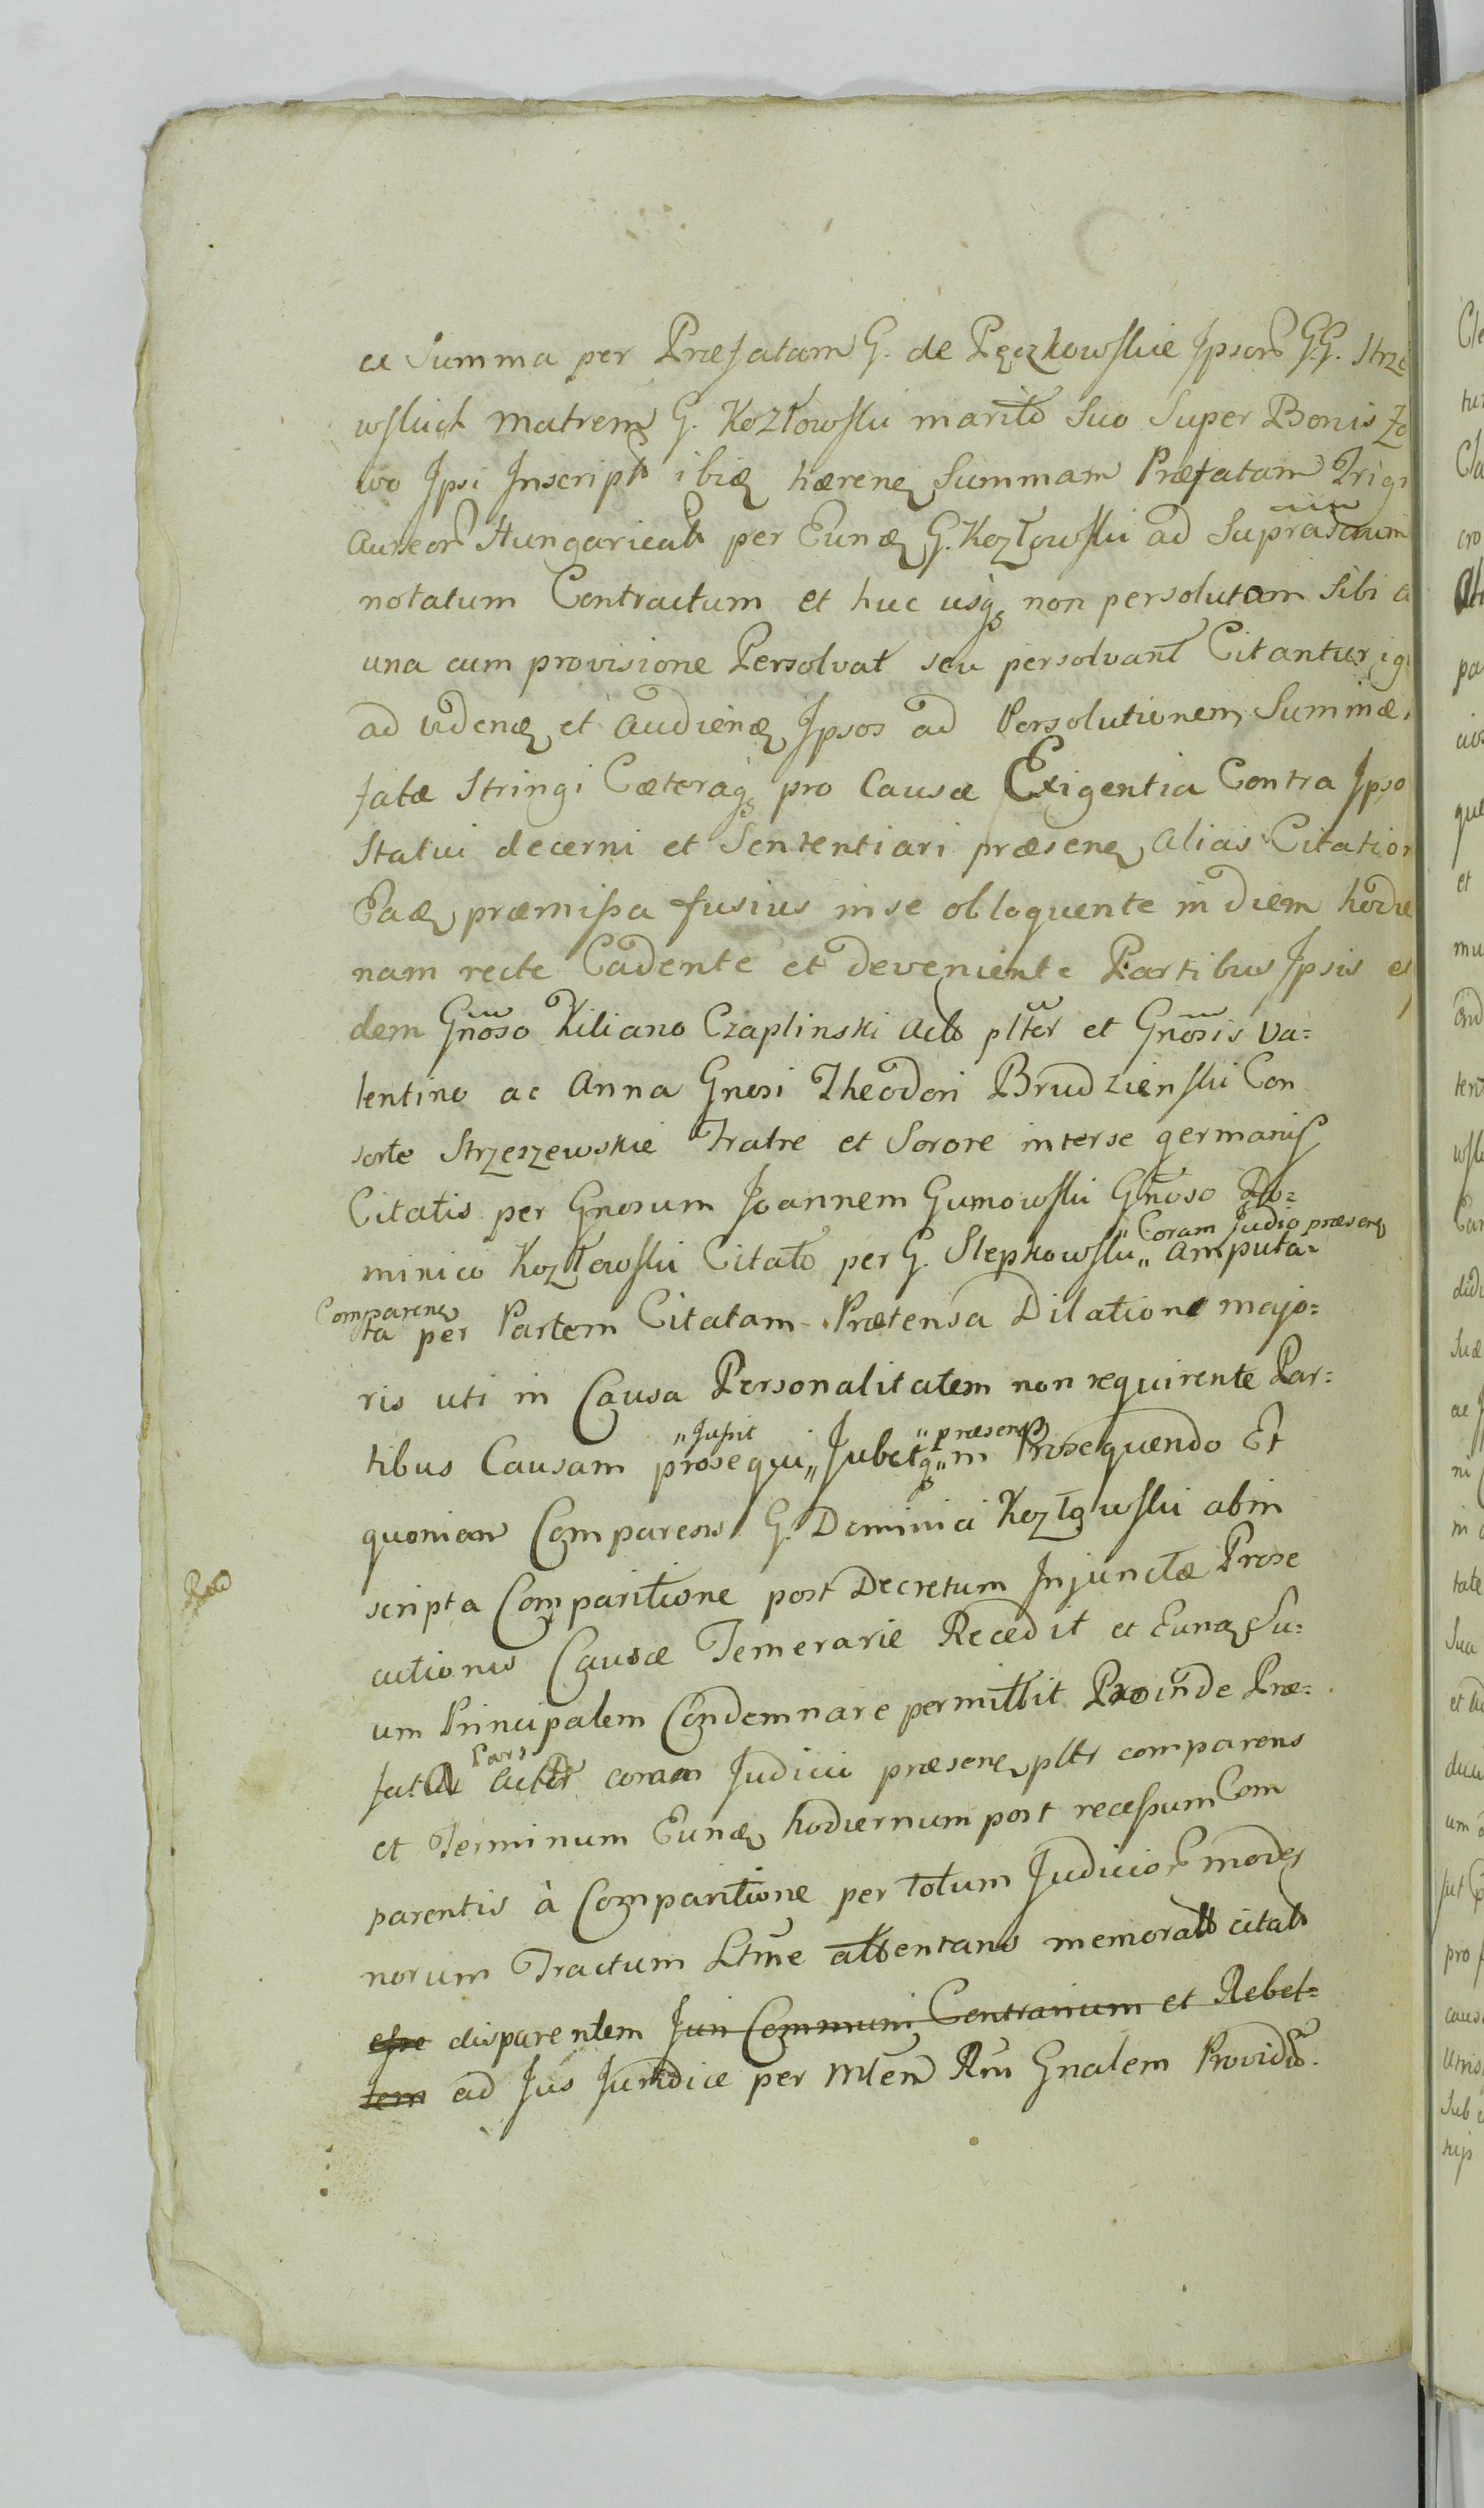 a Summa per Præfatam G. de Pęczkowskie Ipsor GG. Strze
wskich matrem G. Kozłowski marito Suo Super Bonis
Ipsi Inscript ibiq hærenq Summam Præfatam Trigi
Aureor Hungarical per Eunq G. Kozłowski ad Supra
notatum Contractum et huc usq non persolutam Sibi a
una cum provisione Persolvat seu persolvant Citantur
ad vidend et audiend Ipsos ad Persolutionem Summæ
fatæ Stringi Cæteraq pro Causæ Exigentia Contra Ipso
Statui decerni et Sententiari præsenq alias Citation
Eaq præmissa fusius in se obloquente in diem hodie
nam recte Cadente et deveniente Partibus Ipsis
dem Gnoso Kiliano Czaplinski Act plter et Gnosis Va=
lentino ac Anna Gnosi Theodori Brudzienski Con
sorte Strzeszewskie Fratre et Sorore inter se germanis
Citatis per Gnosum Joannem Gumowski Gnoso Do=
minico Kozłowski Citato per G. Slepkowski „ Coram Judio præsenq
Comparenq „ amputa=
ta per Partem Citatam Prætensa Dilatione majo=
ris uti in Causa Personalitatem non requirente Par=
tibus Causam prosequi „ Jussit „ Jubetq „ præsenq „ in Prosequendo Et
quoniam Comparens G. Dominici Kozłowski ab in
scripta Comparitione post Decretum Injunctæ Prose
cutionis Causæ Temerarie Recedit et Eunq Su=
um Principalem Condemnare permittit Proinde Præ=
fata Pars Act coram Judicii præsenq plter comparens
et Terminum Eunq hodiernum post recessum Com
parentis à Comparitione per totum Judicior moder
norum Tractum Ltme attentans memorat citat
esse disparentem Juri Communi Contrarium et Rebel=
lem ad Jus Juridice per Mlem Rni Gnalem Provid.